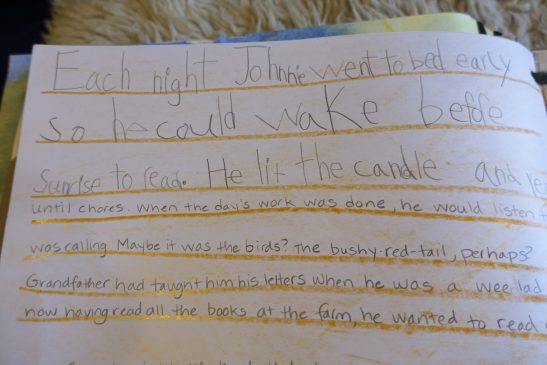 Each night Johnnie went to bed early
so he could wake before
Sunrise to read. He lit the candle and
until chores. When the day's work was done, he would listen
was calling Maybe it was the birds? The bushy-red-tail, perhaps?
Grandfather had taught him his letters when he was a wee lad
now having read all the books at the farm, he wanted to read